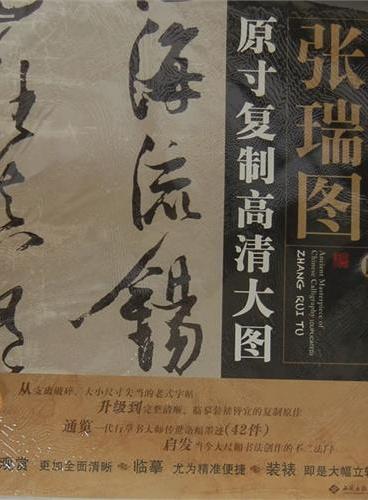 张瑞图
原寸复制高清大图
Ancient Masterpiece of
Chinese Calligraphy
ZHANG RUI TU
海流錫
从支离破碎、大小尺寸失当的老式字帖
升级到完整清晰、临摹装裱皆宜的复制原作
通览一代行草书大师传世浩瀚墨迹(42件)
启发当今大尺幅书法创作的不二法门
观赏 更加全面清晰 临摹 尤为精准便捷 装裱 即是大幅立轴